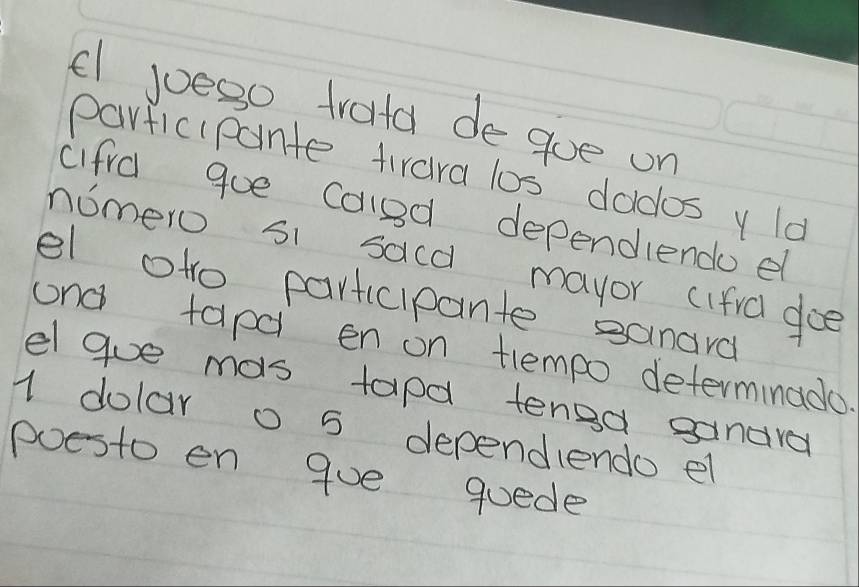 El juego trata de que un
participante tirara los dados y la
cifra que caiga dependiendo el
número si saca mayor cifra que
el otro participante ganara
una tapa en un tiempo determinado.
el que mas tapa tenga ganara
1 dolar o 5 dependiendo el
puesto en que quede